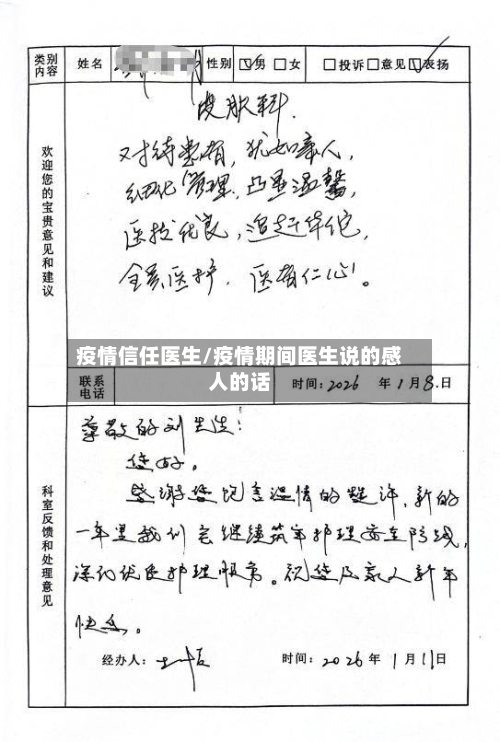 类别内容 姓名 性别 ☑男 □女 □投诉□意见☑表扬
皮肤科.
欢迎您的宝贵意见和建议
对待患者，犹如亲人，
细化管理，凸显温馨，
医技优良，追赶华佗，
全系医护，医者仁心。
疫情信任医生/疫情期间医生说的感人的话
联系电话 时间：2026 年 1 月 8 日
科室反馈和处理意见
尊敬的刘先生：
您好。
感谢您饱含温情的赞许，新的
一年里我们会继续筑牢护理安全防线，
深化优质护理服务。祝您及家人新年
快乐。
经办人： 时间：2026 年 1 月 11 日